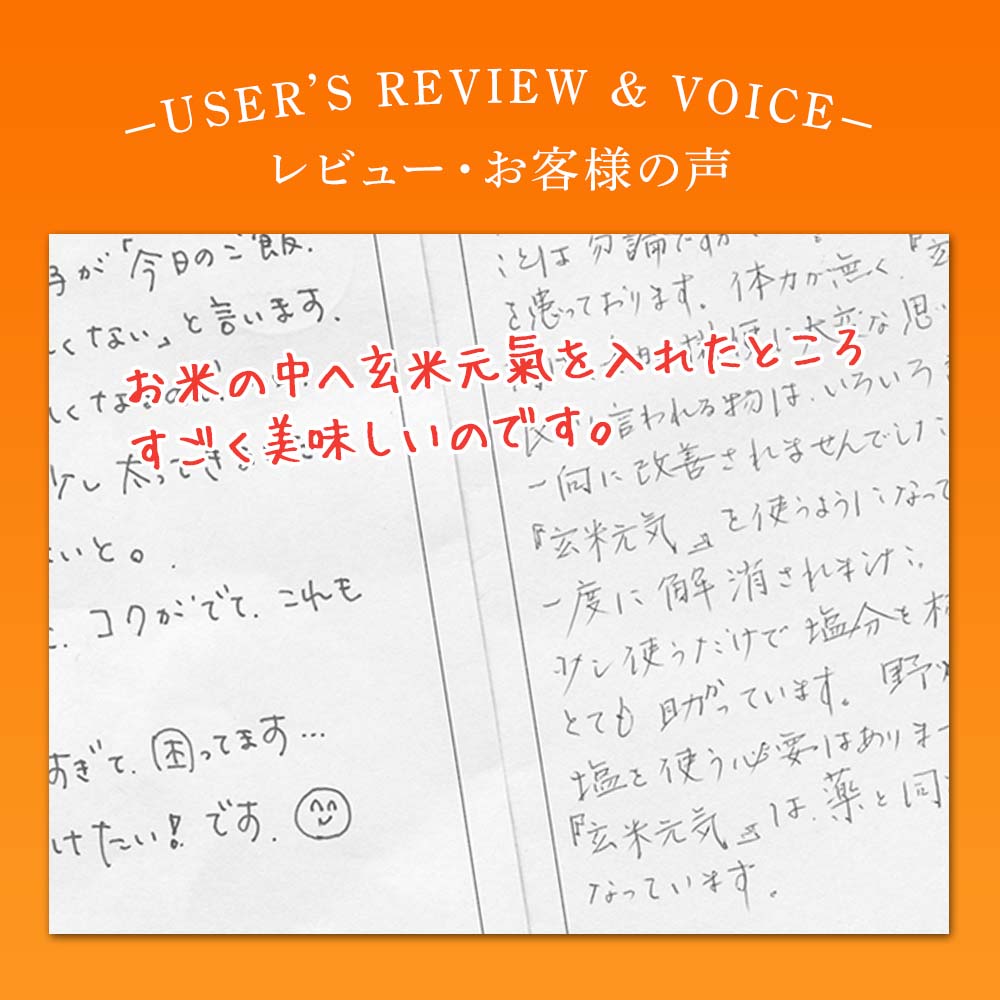 –USER'S REVIEW & VOICE–
レビュー・お客様の声
お米の中へ玄米元氣を入れたところ
すごく美味しいのです。
が「今日のご飯、
くない」と言います。
少し太ってき
いと。
コクがでて、これも
すぎて、困ってます…
けたい！です。
ことは勿論ですが
を患っております。体力が無く、『玄
に大変な思い
言われる物は、いろいろ
一向に改善されませんでした
『玄米元気』を使うようになって
一度に解消されました。
少し使うだけで塩分を
とても助かっています。野
塩を使う必要はありま
『玄米元気』は、薬と同
なっています。